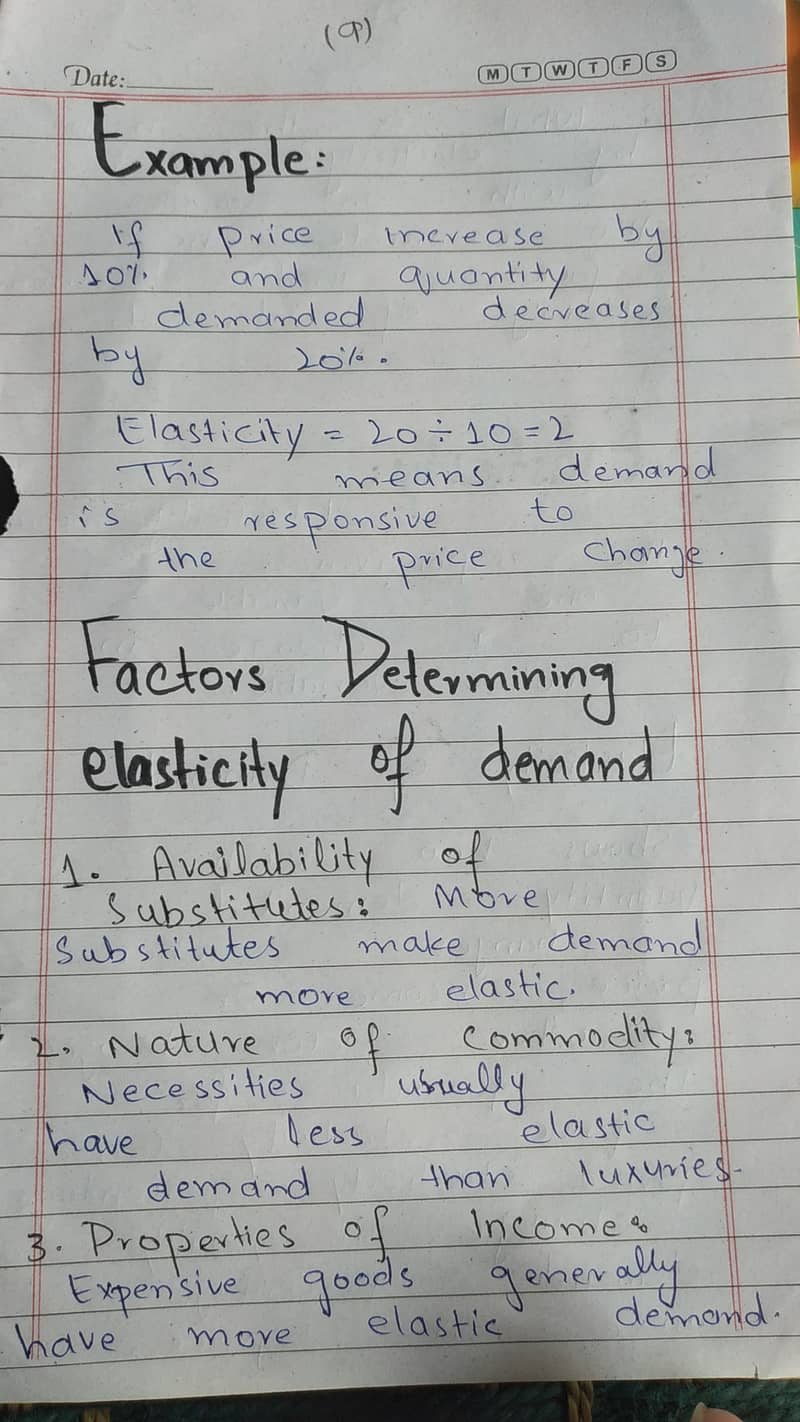 (9)
Date:
M T W T F S
Example:
If price increase by
10% and quantity
demanded decreases
by 20%.
Elasticity = 20 ÷ 10 = 2
This means demand
is responsive to
the price change.
Factors Determining
elasticity of demand
1. Availability of
Substitutes: More
Substitutes make demand
more elastic.
2. Nature of Commodity:
Necessities usually
have less elastic
demand than luxuries.
3. Properties of Income:
Expensive goods generally
have more elastic demand.